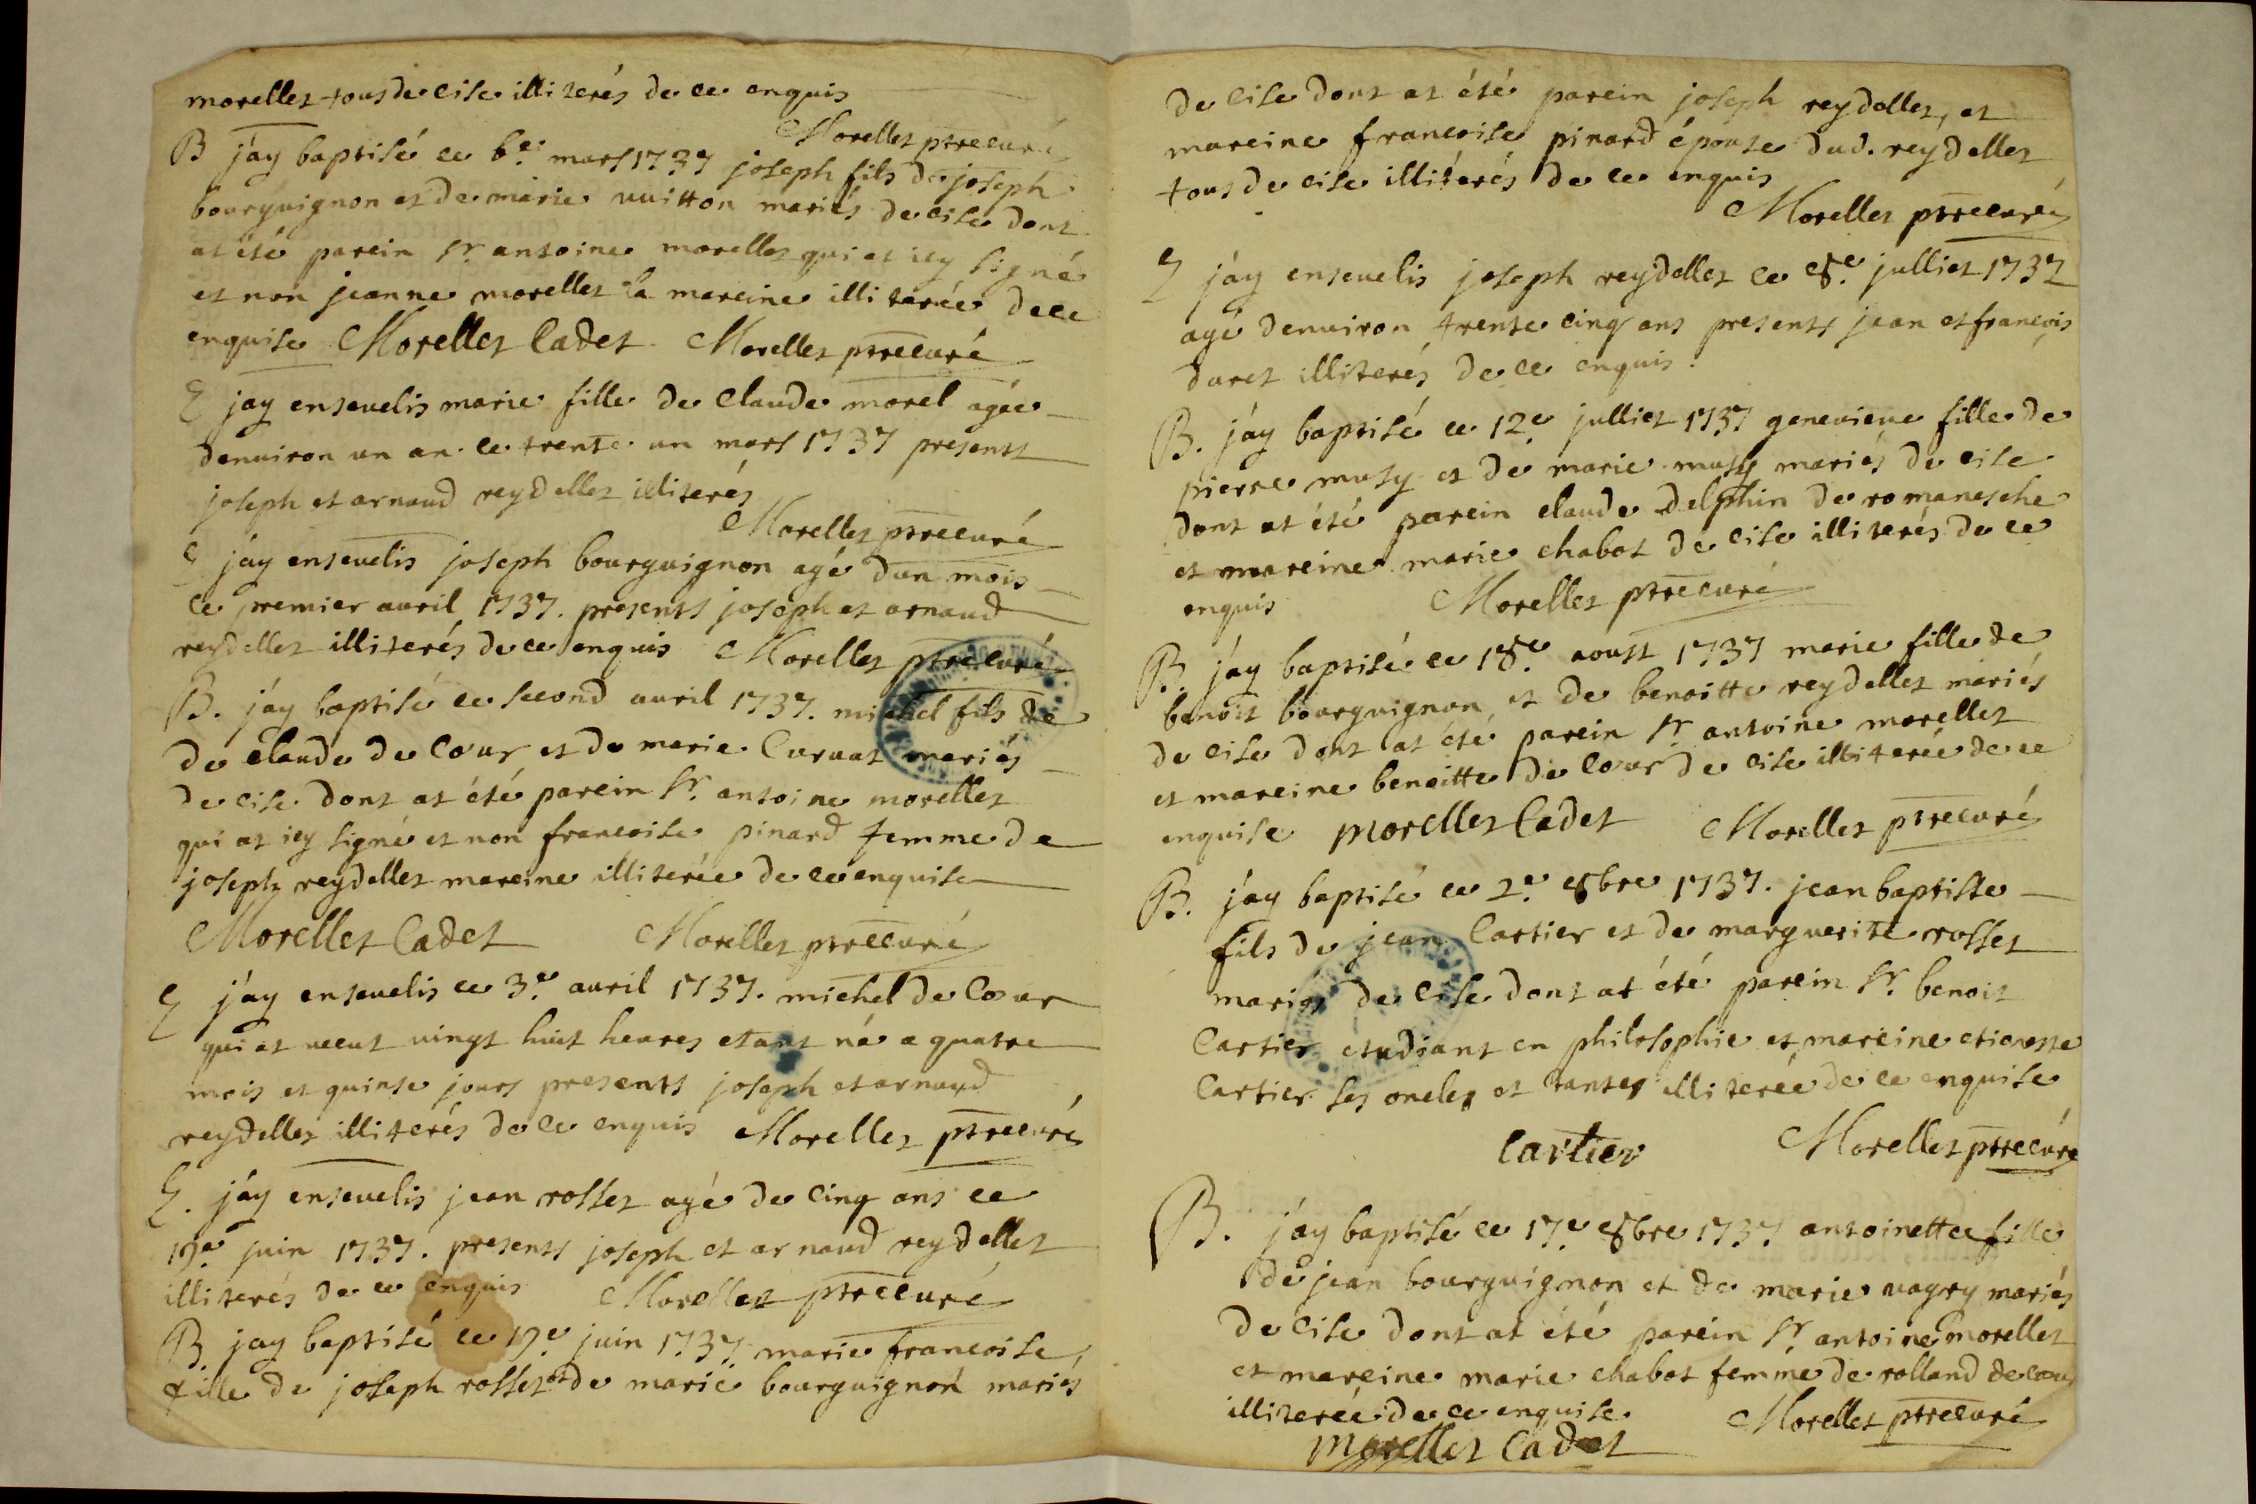 morellet tous de cise illiterés de ce enquis
Morellet ptre curé
B jay baptisé ce 6e. mars 1737 joseph fils de joseph
bourguignon et de marie vuitton mariés de cise dont
at été parein sr. antoine morellet qui at icy signé
et non jeanne morellet sa mareine illiterée de ce
enquise Morellet Cadet Morellet ptre curé
E jay ensevelis marie fille de Claude morel agée
denviron un an ce trente un mars 1737 presents
joseph et arnaud reydellet illiterés
Morellet ptre curé
E jay ensevelis joseph bourguignon agé dun mois
ce premier avril 1737. presents joseph et arnaud
reydellet illiterés de ce enquis Morellet ptre curé
B. jay baptisé ce second avril 1737. michel fils de
de Claude de Cour et de marie Curvat mariés
de cise dont at été parein sr. antoine morellet
qui at icy signé et non francoise pinard femme de
joseph reydellet mareine illiterée de ce enquise
Morellet Cadet Morellet ptre curé
E jay ensevelis ce 3e. avril 1737. michel de Cour
qui at vecut vingt huit heures etant né a quatre
mois et quinse jours presents joseph et arnaud
reydellet illiterés de ce enquis Morellet ptre curé
E. jay ensevelis jean rosset agé de cinq ans ce
19e juin 1737. presents joseph et arnaud reydellet
illiterés de ce enquis Morellet ptre curé
B. jay baptisé ce 19e juin 1737. marie francoise,
fille de joseph rosset et de marie bourguignon mariés
de Cise dont at été parein joseph reydellet, et
mareine francoise pinard épouse dud. reydellet
tous de cise illiterés de ce enquis
Morellet ptre curé
E jay ensevelis joseph reydellet ce 8e. julliet 1737
agé denviron trente cinq ans presents jean et francois
duret illiterés de ce enquis.
B. jay baptisé ce 12e julliet 1737 genevieve fille de
pierre musy et de marie musy mariés de cise
dont at été parein claude delphin de romanesche
et mareine marie chabot de Cise illiterés de ce
enquis Morellet ptre curé
B. jay baptisé ce 18e. aoust 1737 marie fille de
benoit bourguignon et de benoitte reydellet mariés
de cise dont at été parein sr antoine morellet
et mareine benoitte de Cour de cise illiterée de ce
enquise morellet Cadet Morellet ptre curé
B. jay baptisé ce 2e. 8bre 1737. jean baptiste
fils de jean Cartier et de marguerite rosset
mariés de Cise dont at été parein sr. benoit
Cartier étudiant en philosophie et mareine etienette
Cartier ses oncles et tantes illiterée de ce enquise
Cartier Morellet ptre curé
B. jay baptisé ce 17e 8bre 1737 antoinette fille
de jean bourguignon et de marie vagry mariés
de Cise dont at été parein sr. antoine morellet
et mareine marie chabot femme de rolland de cour
illiterée de ce enquise. Morellet ptre curé
morellet Cadet